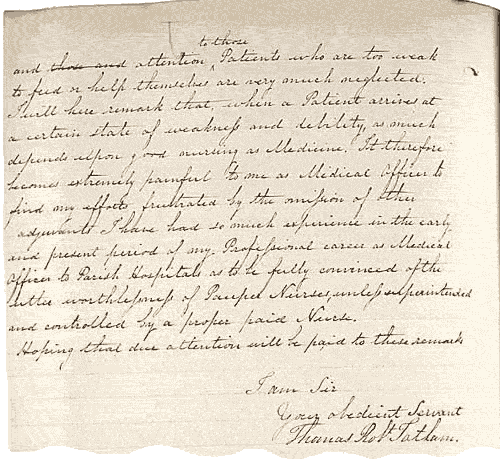 to those
and those and attention Patients who are too weak
to feed or help themselves are very much neglected.
I will here remark that, when a Patient arrives at
a certain state of weakness and debility, as much
depends upon good nursing as Medicine. It therefore
becomes extremely painful to me as Medical Officer to
find my efforts frustrated by the omission of other
adjuvants I have had so much experience in the early
and present period of my Professional career as Medical
Officer to Parish Hospitals as to be fully convinced of the
utter worthlessness of Pauper Nurses, unless superintended
and controlled by a proper paid Nurse.
Hoping that due attention will be paid to these remarks
I am Sir
Your obedient Servant
Thomas Robt Tatham.